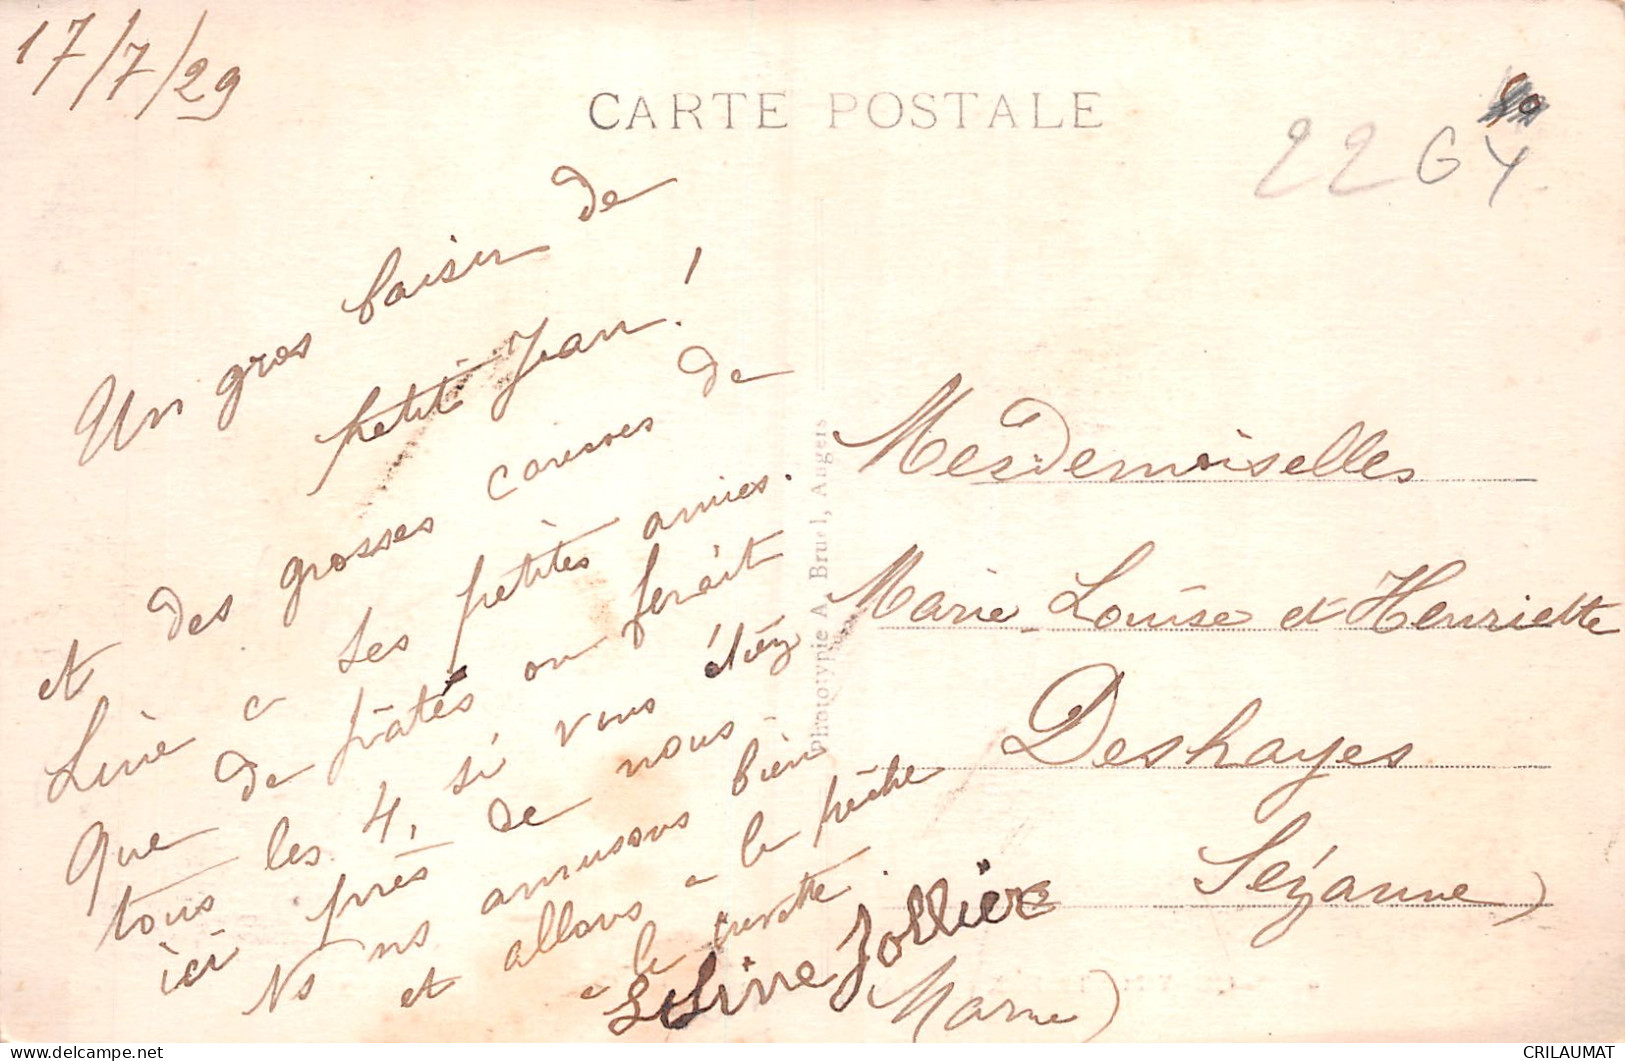 17/7/29
CARTE POSTALE
22 G Y
Un gros baiser de
petit Jean !
et des grosses caresses de
Line à ses petites amies.
Que de pâtés on ferait
tous les 4, si vous étiez
ici près de nous
Ns ns amusons bien
et allons à la pêche
à la crevette
Line Jollier
Phototypie A. Bruel, Angers
MesDemoiselles
Marie-Louise et Henriette
Deshayes
Sézanne
Marne)
CRILAUMAT